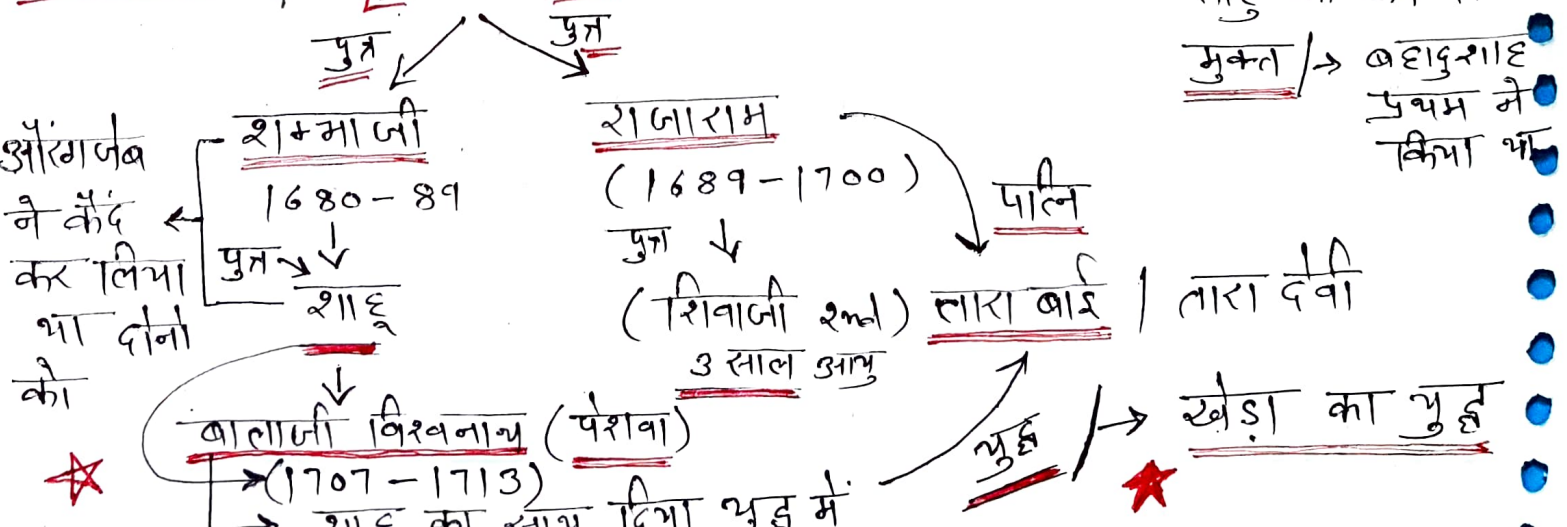 पुत्र
पुत्र
मुक्त / → बहादुशाह
प्रथम ने
किया था
औरंगजेब
ने कैद
कर लिया
था दोनो
को
शम्भाजी
1680-89
पुत्र
शाहू
राजाराम
(1689-1700)
पुत्र
(शिवाजी 2nd)
3 साल आयु
पत्नि
तारा बाई / तारा देवी
बालाजी विश्वनाथ (पेशवा)
(1707-1713)
शाहू का साथ दिया युद्ध में
युद्ध / → खेड़ा का युद्ध